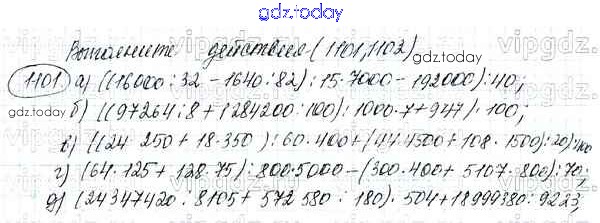 gdz.today
Выполните действия (1101, 1102)
1101. а) ((16000 : 32 - 1640 : 82) : 15·7000 - 192000) : 40;
б) ((97264 : 8 + 1284200 : 100) : 1000·7 + 947) : 100;
в) ((24·250 + 18·350) : 60·400 + (44·4500 + 108·1500) : 20) : 100
г) (64·125 + 128·75) : 800·5000 - (300·400 + 5107·800) : 70;
д) (24347420 : 8105 + 572580 : 180)·504 + 18999380 : 9223;
gdz.today